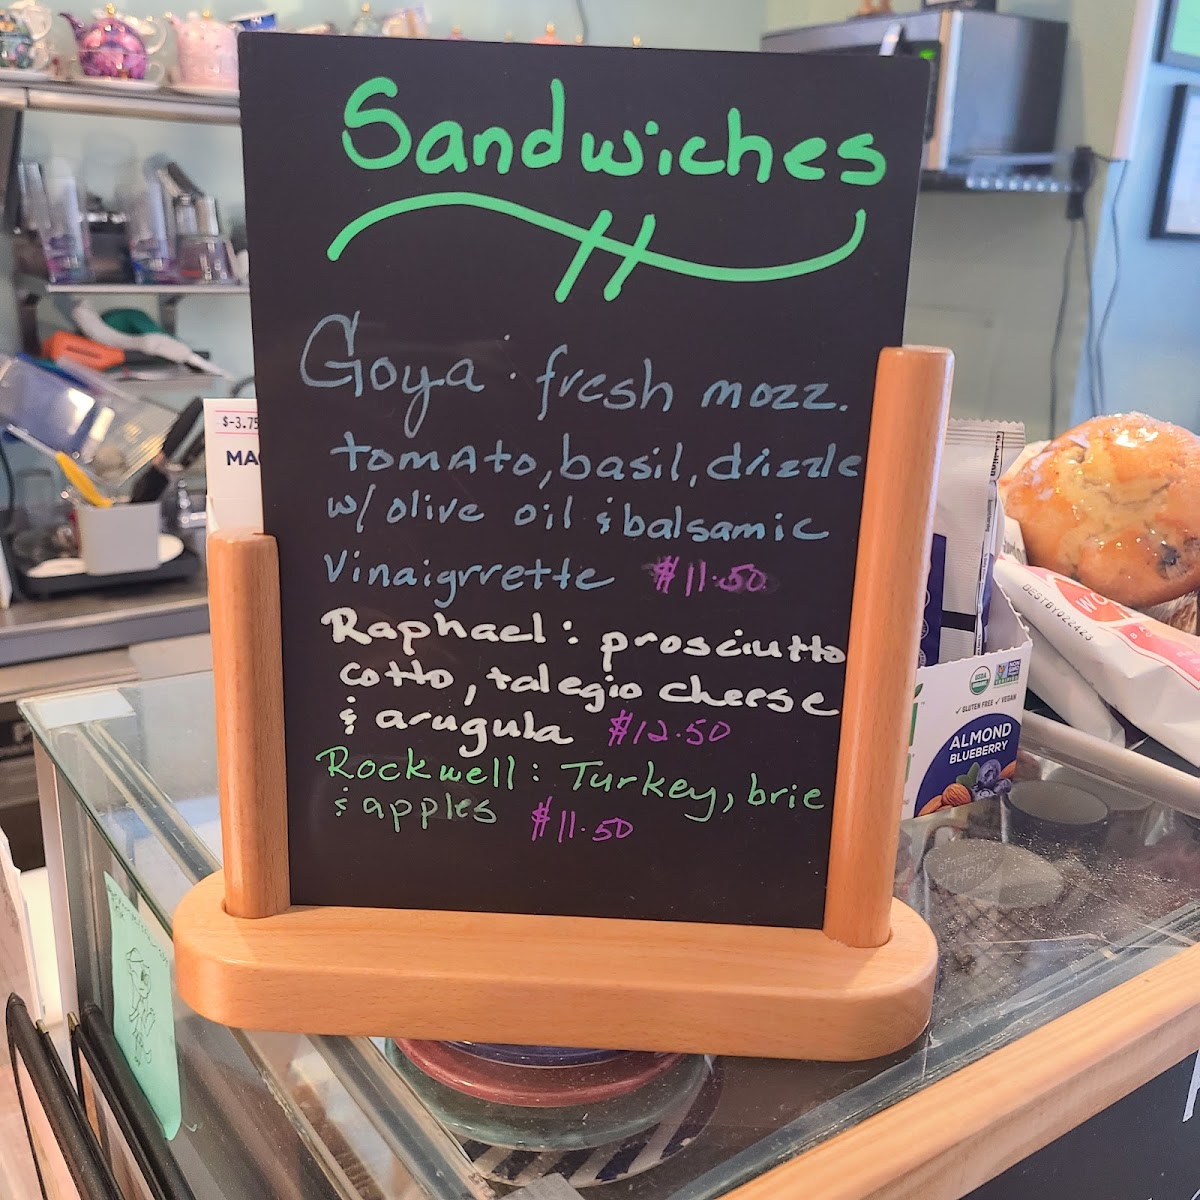 Sandwiches
Goya: fresh mozz.
tomato, basil, drizzle
w/ olive oil & balsamic
Vinaigrrette $11.50
Raphael: prosciutto
cotto, talegio cheese
& arugula $12.50
Rockwell: Turkey, brie
& apples $11.50
$-3.75
MA
BEST BY 022423
USDA
ORGANIC
NON
GMO
✓ GLUTEN FREE ✓ VEGAN
ALMOND
BLUEBERRY